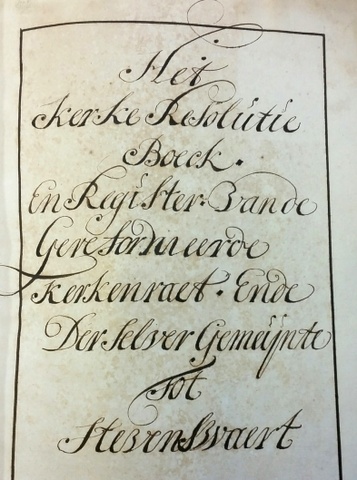 Het
Kerke Resolutie
Boeck.
En Register Vande
Gereformeerde
Kerkenraet. Ende
Der selver Gemeijnte
tot
Stevenswaert